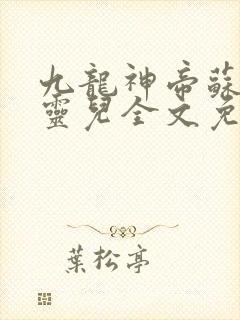 九龍神帝蘇
靈兒全文免
葉松亭